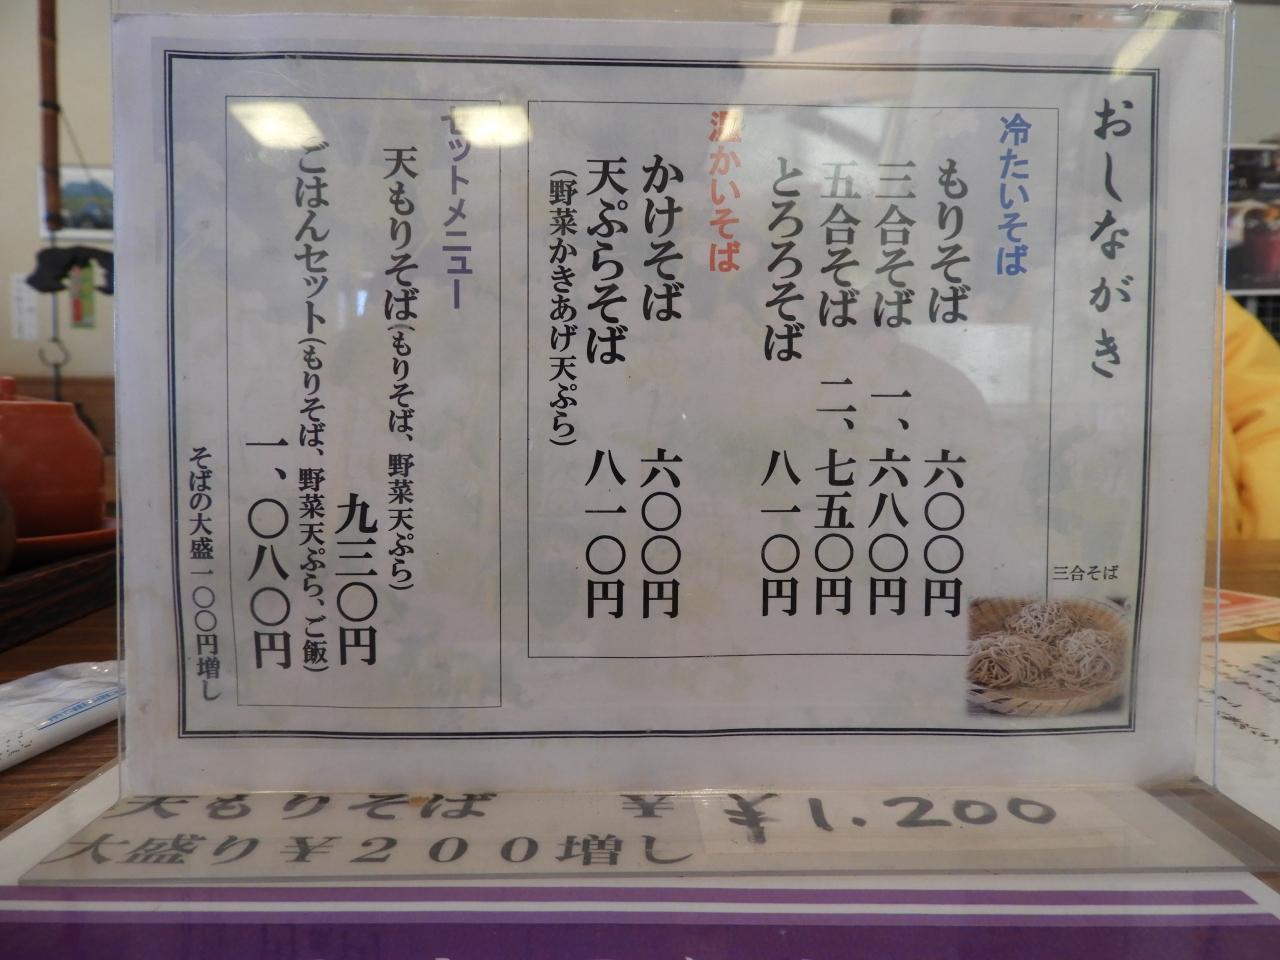 おしながき
冷たいそば
もりそば 六〇〇円
三合そば 一、六八〇円
五合そば 二、七五〇円
とろろそば 八一〇円
温かいそば
かけそば 六〇〇円
天ぷらそば 八一〇円
(野菜かきあげ天ぷら)
三合そば
セットメニュー
天もりそば(もりそば、野菜天ぷら)
九三〇円
ごはんセット(もりそば、野菜天ぷら、ご飯)
一、〇八〇円
そばの大盛一〇〇円増し
天もりそば ¥ ¥1.200
大盛り¥200増し